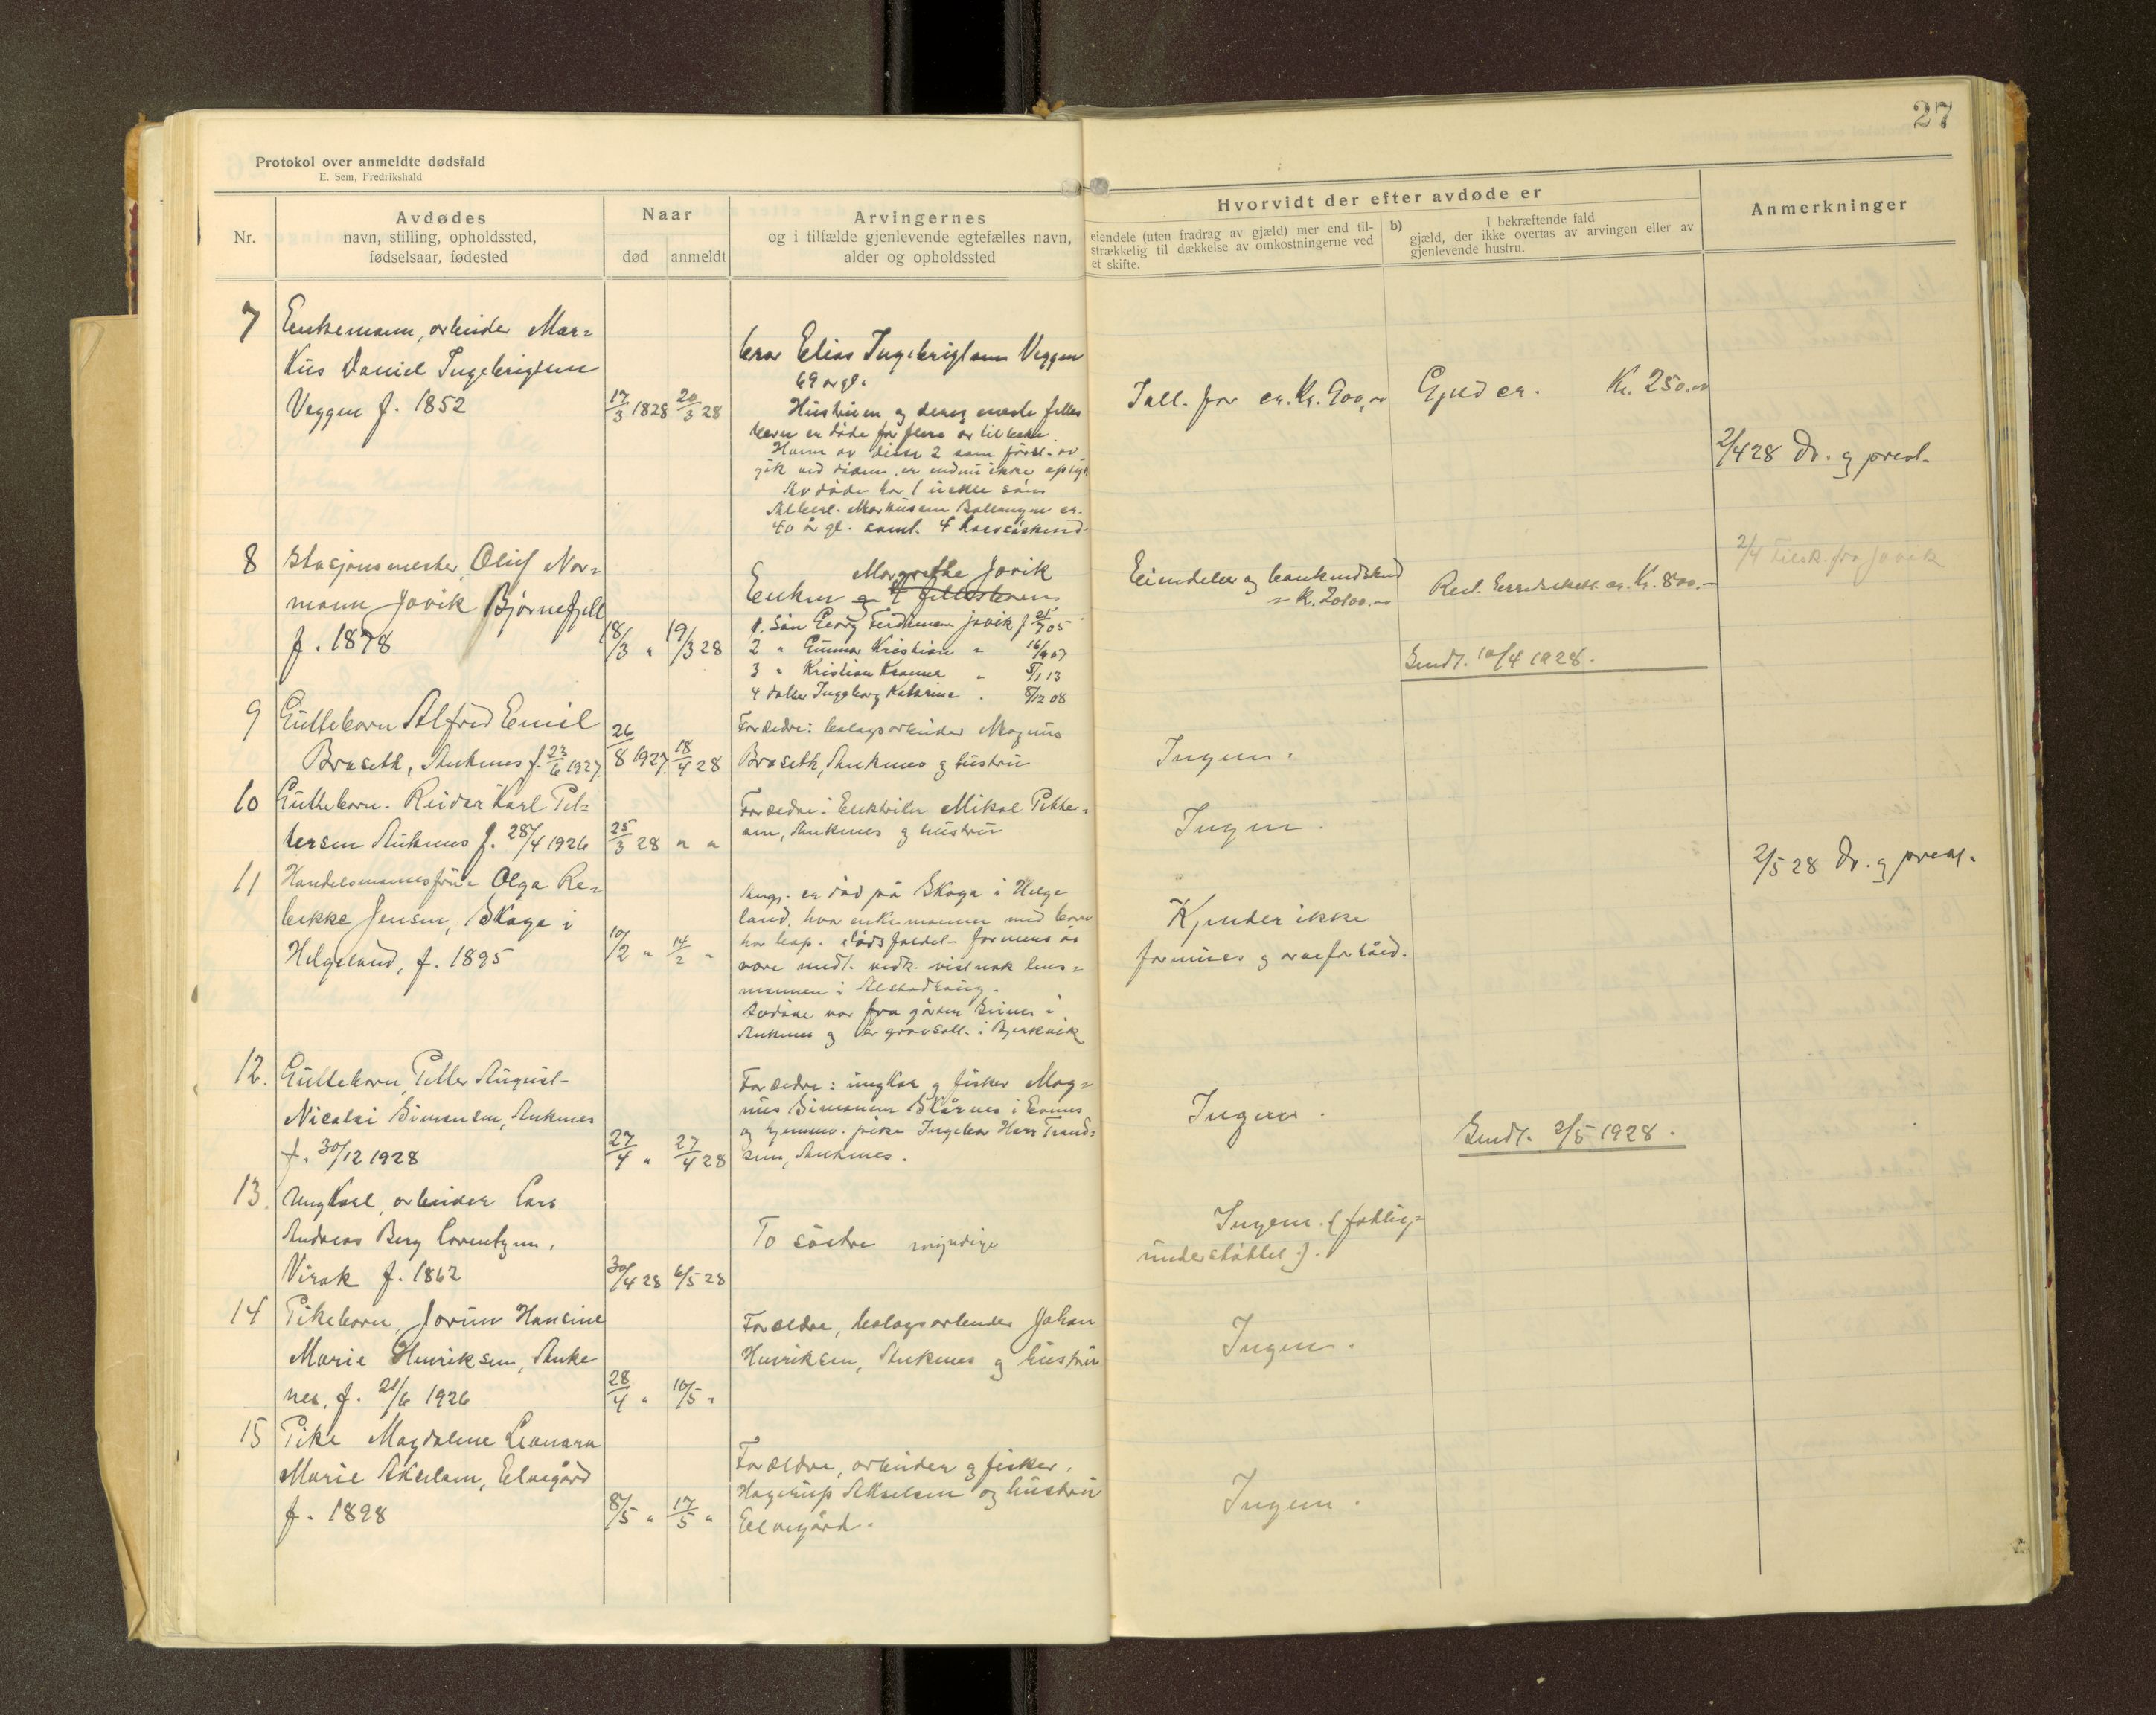 27
Protokol over anmeldte dødsfald
E. Sem, Fredrikshald
Nr.
Avdødes
navn, stilling, opholdssted,
fødselsaar, fødested
Naar
død
anmeldt
Arvingernes
og i tilfælde gjenlevende egtefælles navn,
alder og opholdssted
Hvorvidt der efter avdøde er
eiendele (uten fradrag av gjæld) mer end til-
strækkelig til dækkelse av omkostningerne ved
et skifte.
b)
I bekræftende fald
gjæld, der ikke overtas av arvingen eller av
gjenlevende hustru.
Anmerkninger
7
Enkemann, arbeider Mar=
kus Daniel Ingebrigtsen
Veggen f. 1852
17/3 1828
20/3 28
bror Elias Ingebrigtsen Veggen
69 år gl.
Hustruen og deres eneste felles
barn er døde for flere år tilbake.
Hvem av disse 2 som først av=
gik ved døden er endnu ikke oplyst
Avdøde har 1 uekte sønn
Albert Markussen Ballangen ca.
40 år gl. samt 4 halvsøskend
Tall. for ca. Kr. 900,00
Gjeld ca. Kr. 250.00
2/4 28 Dr. og prest.
8
Stasjonsmester, Oluf Nor=
mann Jovik Bjørnefjell
f. 1878
18/3 "
19/3 28
Margrethe Jovik
Enken og 4 fellesbarn
1. Søn Georg Ferdinan Jovik f 25/7 05
2 " Gunnar Kristian " 16/9 07
3 " Kristian Kranner " 5/1 13
4 datter Ingeborg Katarine " 8/12 08
Eiendeler og bankindskud
= K. 20100.00
Rest. herredsskatt ca. Kr. 800.-
2/4 Tilsk. fra Jovik
Sendt. 10/4 1928.
9
Guttebarn Alfred Emil
Braseth, Ankenes f. 23/6 1927.
26/8 1927.
18/4 28
Forældre: bolagsarbeider Magnus
Braseth, Ankenes og hustru
Ingen.
10
Guttebarn. Reidar Karl Pet=
tersen Ankenes f. 28/4 1926
25/3 28
" "
Forældre: Elektriker Mikal Petter=
sen, Ankenes og hustru
Ingen.
11
Handelsmannsfru Olga Re=
bekke Jensen, Skaga i
Helgeland, f. 1895
10/2 "
14/2 "
Angj. er død på Skaga i Helge
land, hvor enkemannen med barn
har bop. dødsfaldet formenes å
være medt. vedk. vistnok lens=
mannen i Alstadhaug.
Avdøde var fra gården Grines i
Ankenes og er gravsatt i Bjerkvik
Kjender ikke
formues og arveforhold.
2/5 28 Dr. og prest.
12.
Guttebarn Petter August
Nicolai Simonsen, Ankenes
f. 30/12 1928
27/4 "
27/4 28
Forældre: ungkar og fisker Mag=
nus Simonsen Skårnes i Evenes
og hjemmev. pike Ingebor Hans Trand=
sen, Ankenes.
Ingen.
Sendt. 2/5 1928.
13.
Ungkarl, arbeider Lars
Andreas Berg Lorentzen,
Virak f. 1862
30/4 28
6/5 28
To søstre myndige
Ingen. (fattig=
understøttet.).
14
Pikebarn, Jorunn Hansine
Marie Henriksen, Anke
nes, f. 21/6 1926
28/4 "
10/5 "
Forældre, bolagsarbeider Johan
Henriksen, Ankenes og hustru
Ingen.
15
Pike Magdalene Leonara
Marie Akselsen, Elvegård
f. 1898
8/5 "
17/5 "
Forældre, arbeider og fisker,
Hagerup Akselsen og hustru
Elvegård.
Ingen.